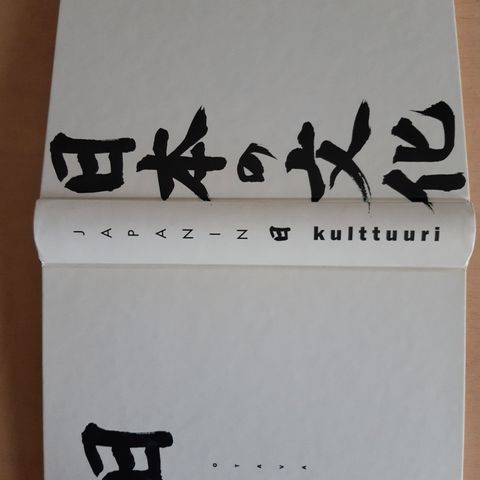 日本の文化
JAPANIN 日 kulttuuri
日
OTAVA